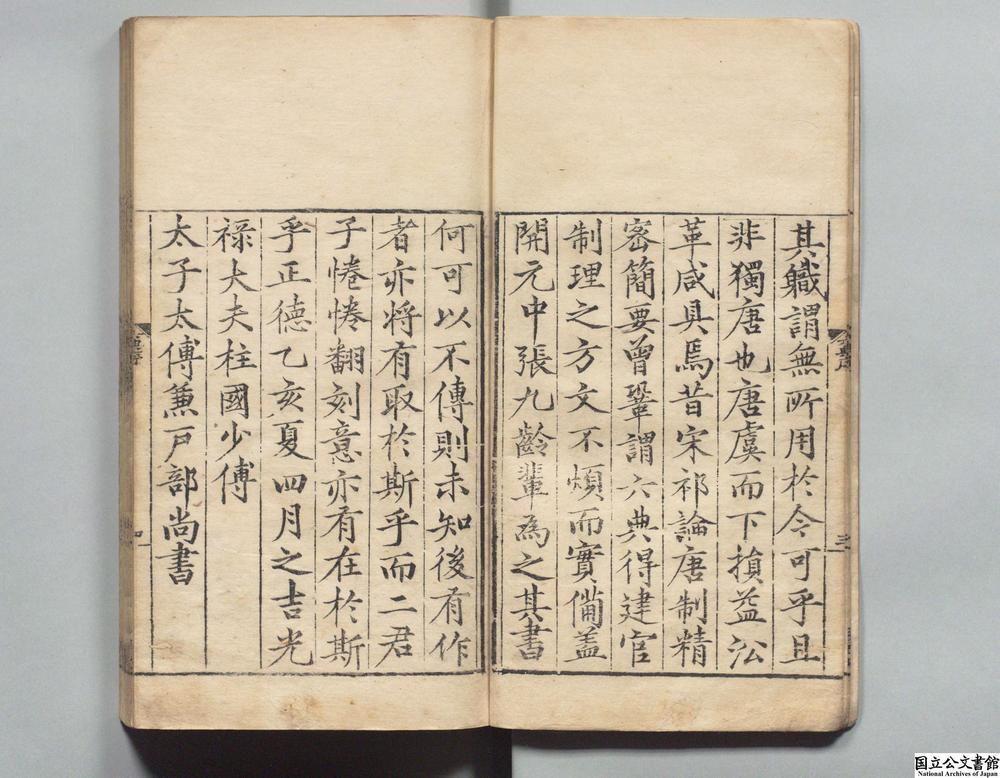 其職謂無所用於今可乎且
非獨唐也唐虞而下損益㳂
革咸具焉昔宋祁論唐制精
密簡要曾鞏謂六典得建官
制理之方文不煩而實備蓋
開元中張九齡輩為之其書
何可以不傳則未知後有作
者亦将有取於斯乎而二君
子惓惓翻刻意亦有在於斯
乎正德乙亥夏四月之吉光
禄大夫柱國少傅
太子太傅兼戶部尚書
三
四
国立公文書館
National Archives of Japan